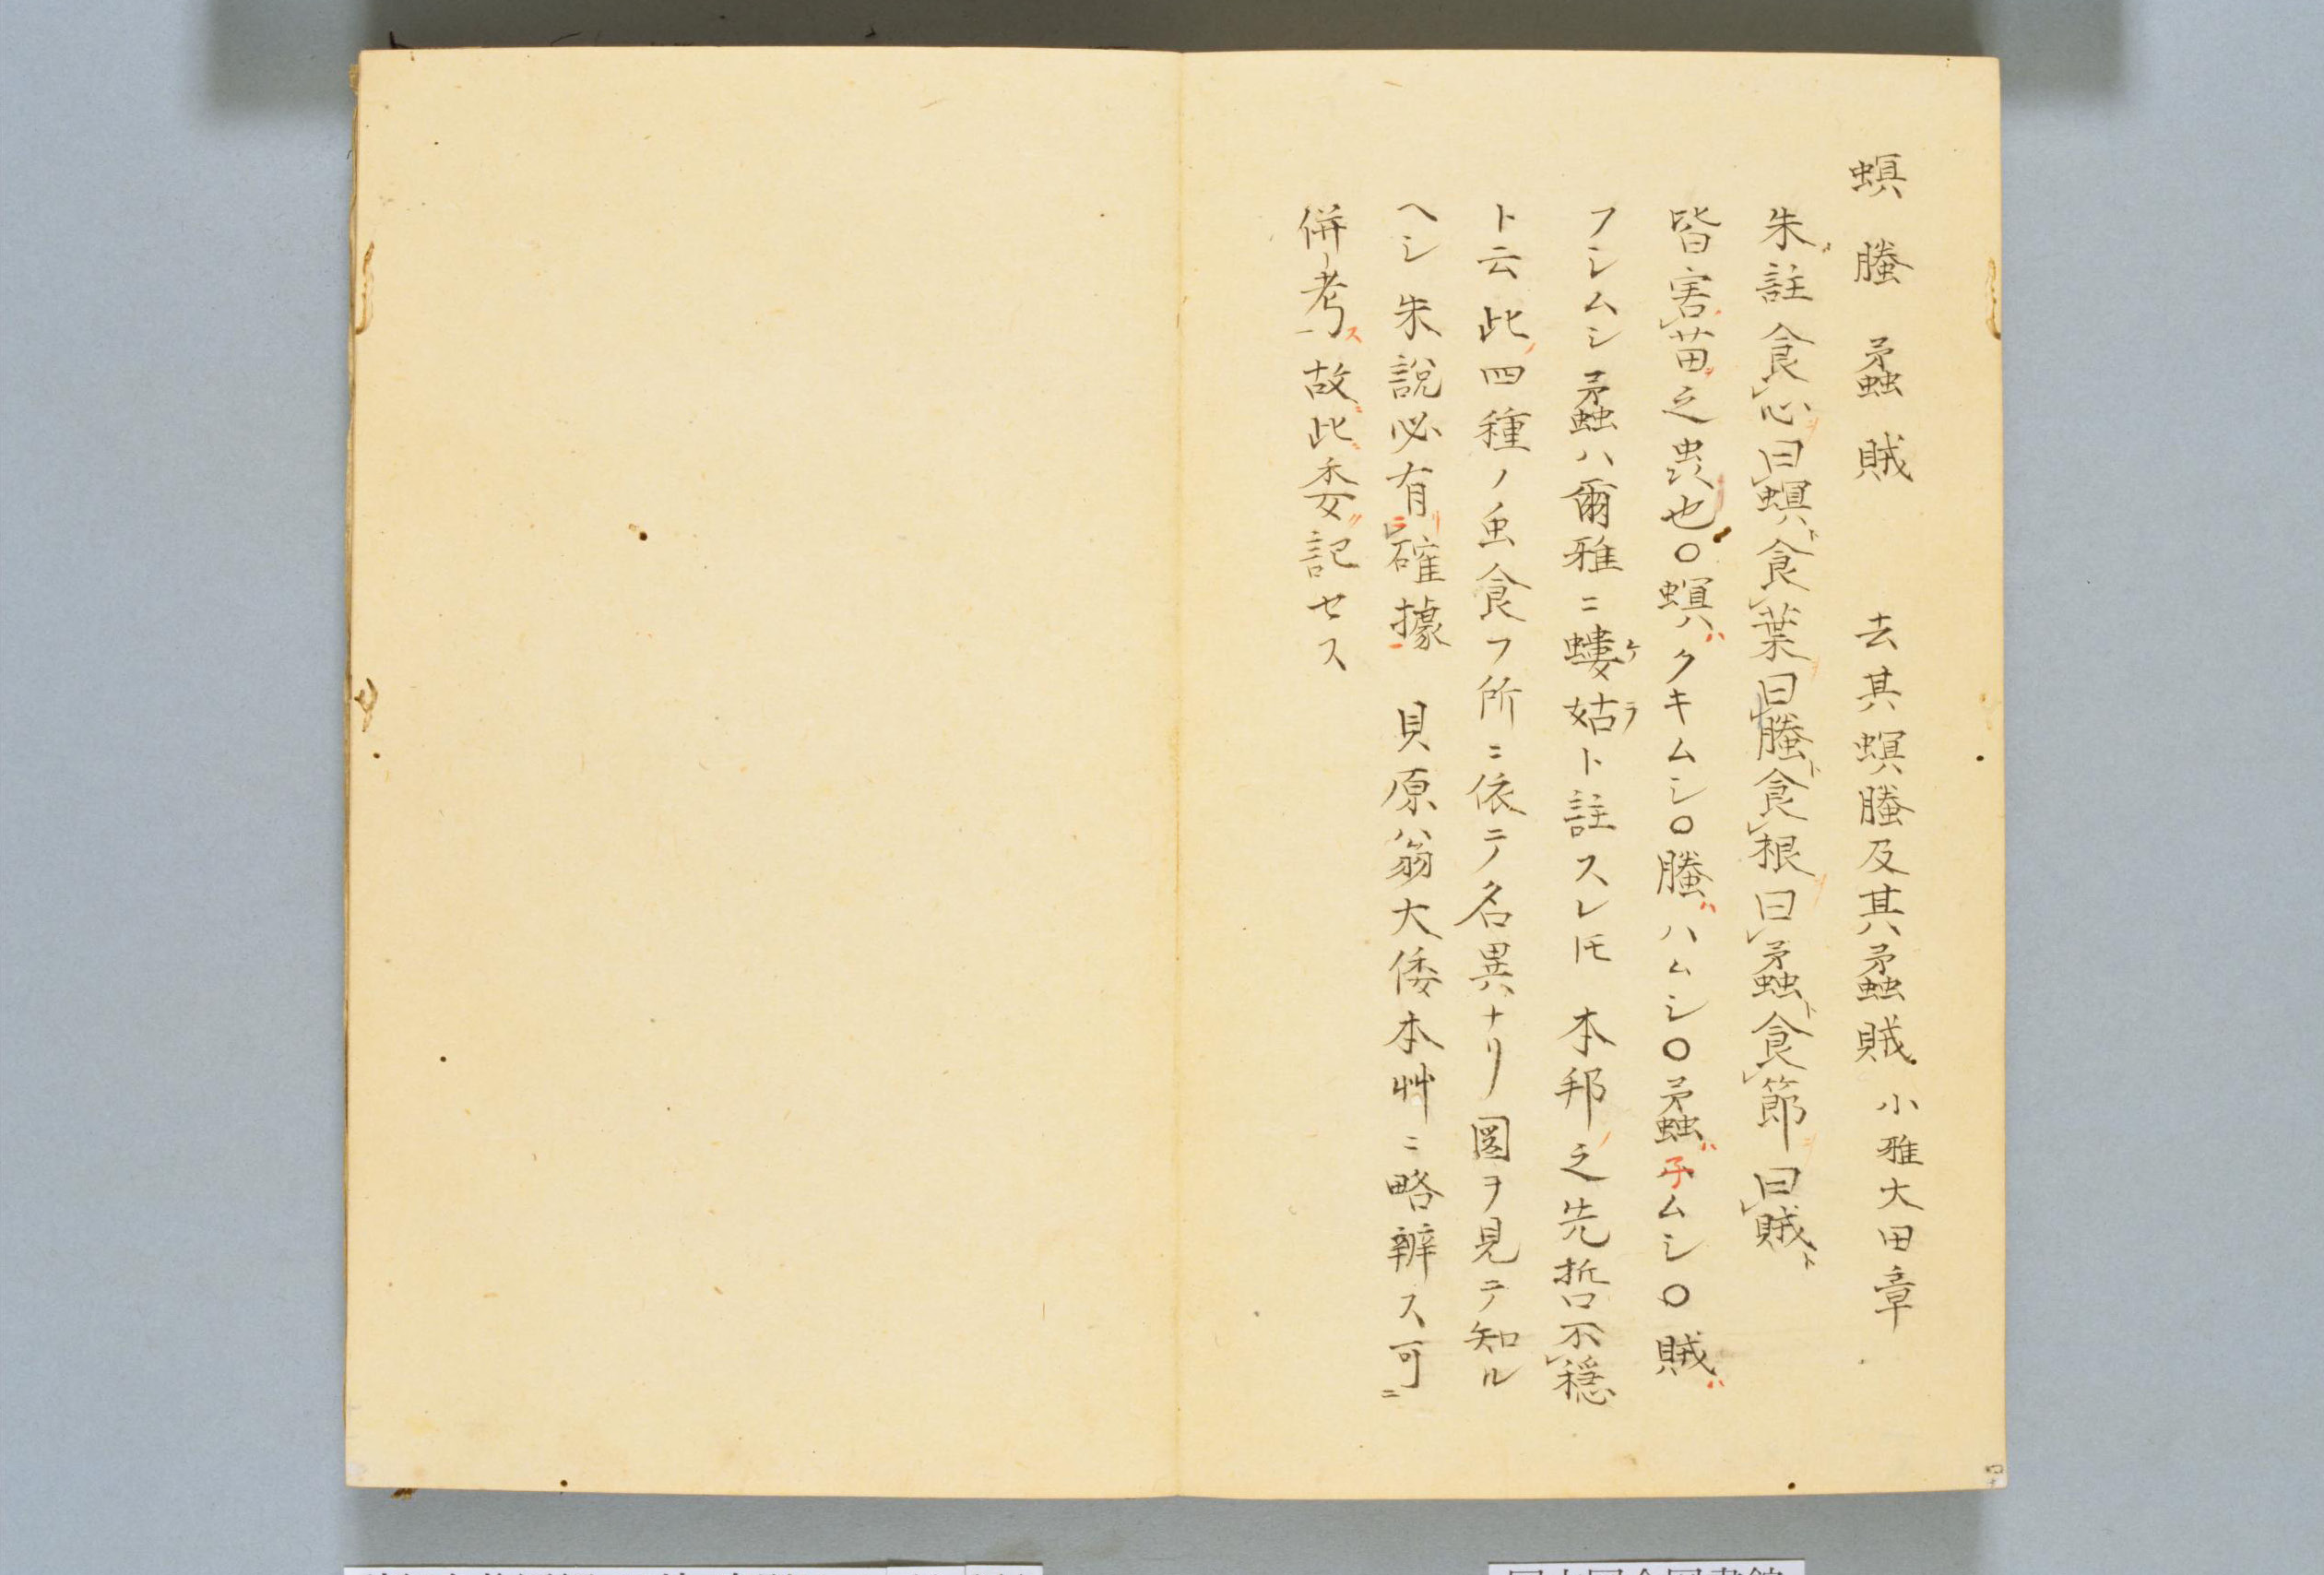 螟 螣 蟊 賊　去其螟螣及其蟊賊 小雅大田章
朱註食心曰螟食葉曰螣食根曰蟊食節曰賊
皆害苗之虫也○螟ハクキムシ○螣ハハムシ○蟊ハ子ムシ○賊ハ
フシムシ蟊ハ爾雅ニ螻姑ト註スレ𪜈 本邦之先哲不穏
ト云此四種ノ虫食フ所ニ依テ名異ナリ圖ヲ見テ知ル
ヘシ朱説必有確據 貝原翁大倭本艸ニ略辨ス可
併考故此委記セス